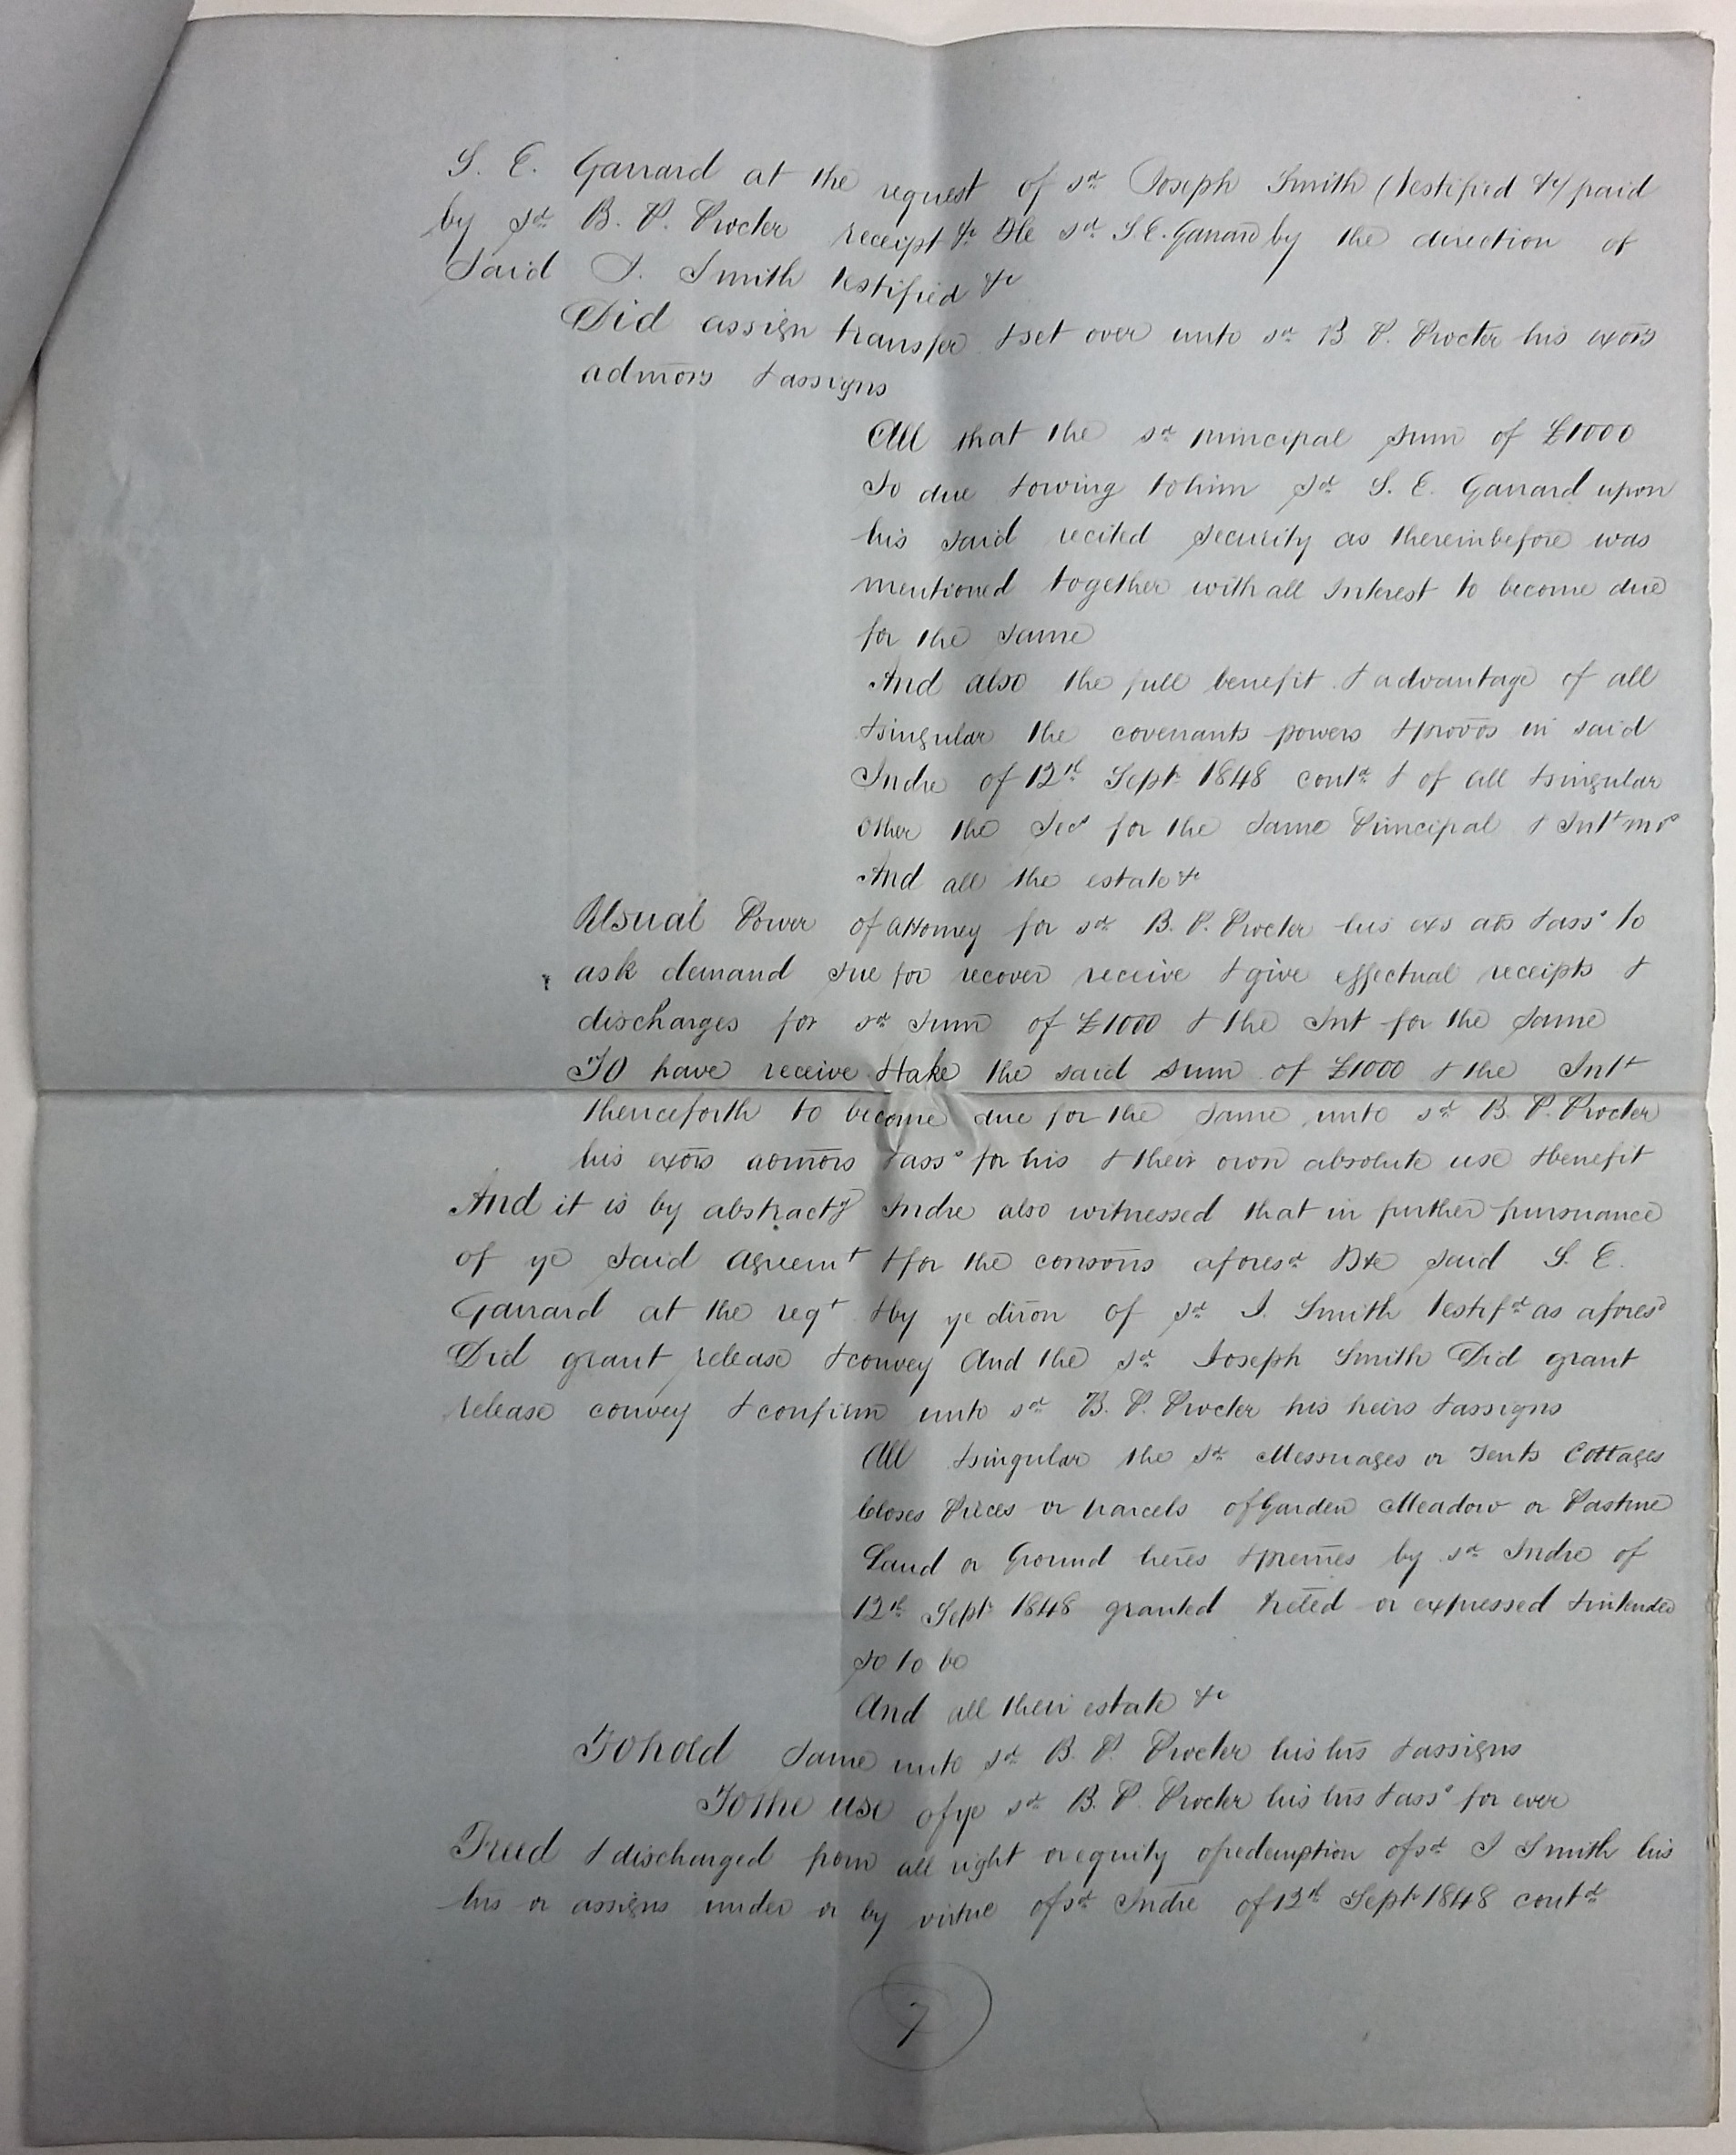 S. E. Garrard at the request of sd Joseph Smith (testified &c) paid
by sd B. P. Procter receipt &c He sd S E. Garrard by the direction of
Said J. Smith testified &c
Did assign transfer & set over unto sd B P. Procter his exōrs
admōrs & assigns
All that the sd principal sum of £1000
So due & owing to him sd S. E. Garrard upon
his said recited security as thereinbefore was
mentioned together with all Interest to become due
for the same
And also the full benefit & advantage of all
& singular the covenants powers & provōs in said
Indre of 12th Sept 1848 contd & of all & singular
other the Secs for the same Principal & Intt mys
And all the estate &c
Usual Power of attorney for sd B. P. Procter his exs ads & asss to
ask demand sue for recover receive & give effectual receipts &
discharges for sd sum of £1000 & the Int for the same
To have receive & take the said sum of £1000 & the Intt
thenceforth to become due for the same unto sd B. P. Procter
his exōrs admōrs & asss for his & their own absolute use & benefit
And it is by abstractg Indre also witnessed that in further pursuance
of ye said agreemt & for the consōns aforesd He said S. E.
Garrard at the reqt & by ye dirōn of sd J. Smith testifd as aforesd
Did grant release & convey And the sd Joseph Smith Did grant
release convey & confirm unto sd B. P. Procter his heirs & assigns
All & singular the sd Messuages or Tents Cottages
Closes Pieces or parcels of Garden Meadow or Pasture
Land or Ground heres & premes by sd Indre of
12th Sept 1848 granted & reled or expressed & intended
so to be
And all their estate &c
To hold same unto sd B. P. Procter his hrs & assigns
To the use of ye sd B. P. Procter his hrs & asss for ever
Freed & discharged from all right or equity of redemption of sd J Smith his
hrs or assigns under or by virtue of sd Indre of 12th Sept 1848 contd
7